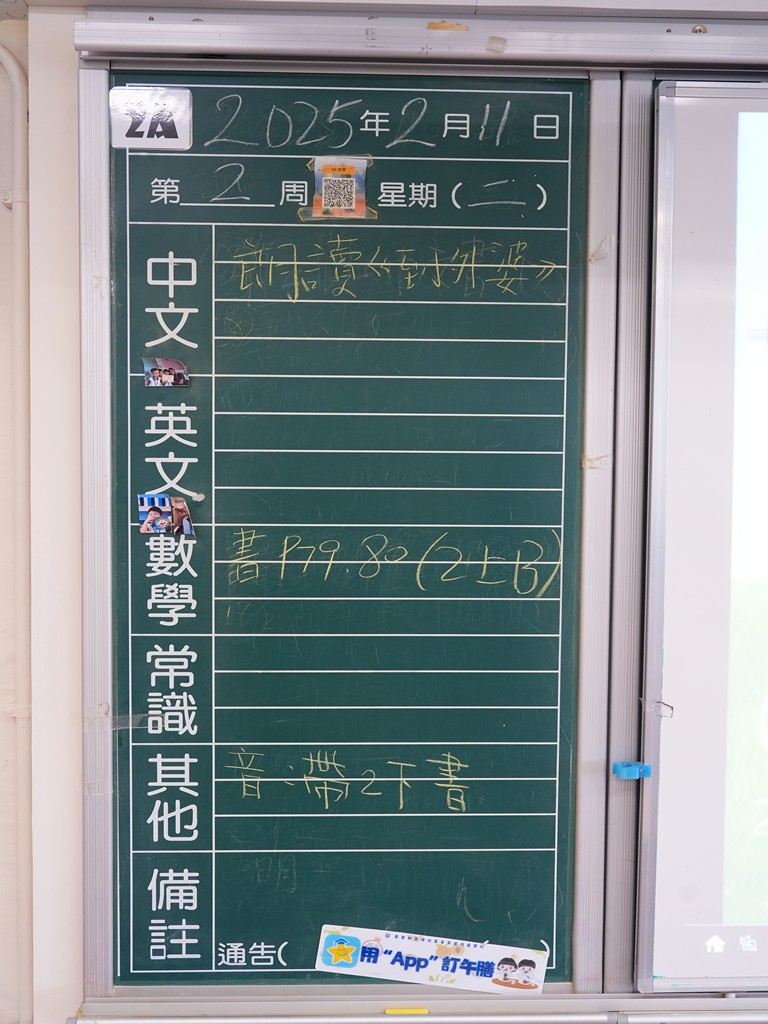 2A 2025年2月11日
第 2 周 星期（二）
中文
朗讀《到外婆》
英文
數學
書 P79.80 (2上B)
常識
其他
音:帶2下書
備註
通告(
)
用“App”訂午膳